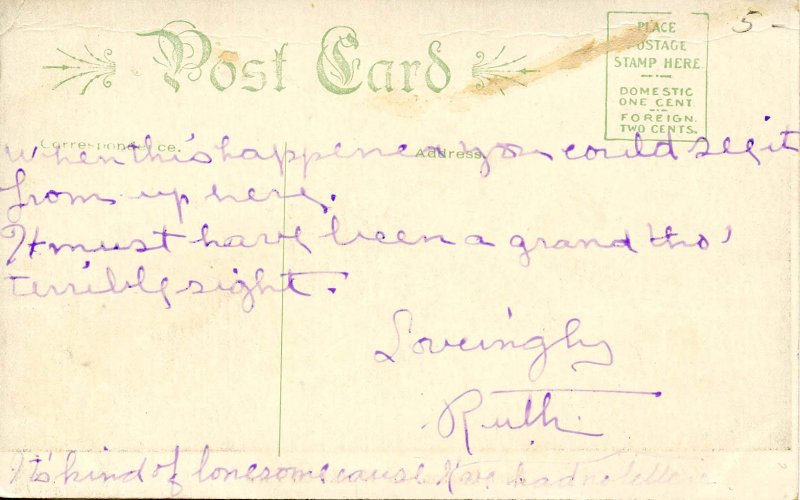 Post Card
PLACE
POSTAGE
STAMP HERE
DOMESTIC
ONE CENT
FOREIGN.
TWO CENTS.
5-
Correspondence.
Address.
When this happened you could see it
from up here.
It must have been a grand tho'
terrible sight.
Loveingly
Ruth.
It's kind of lonesome cause I've had no letters